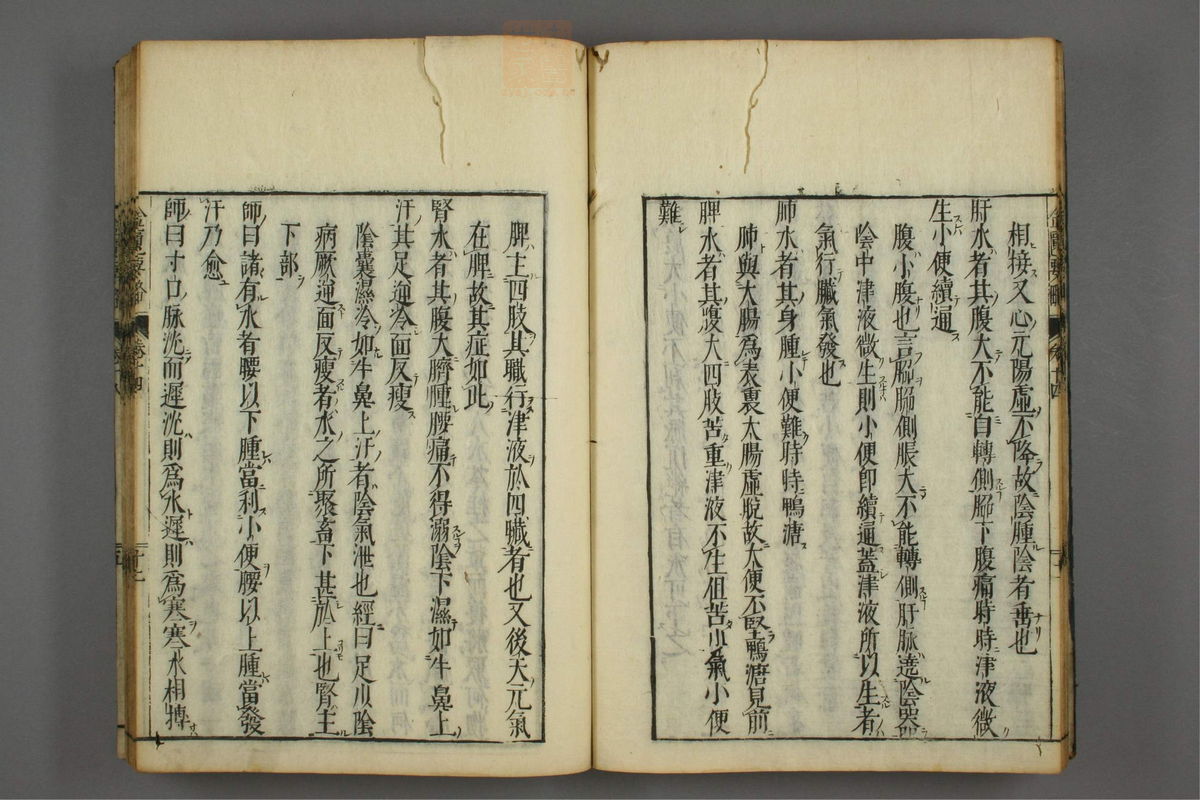 相接又心元陽虛不降故陰腫陰者垂也
肝水者其腹大不能自轉側脇下腹痛時時津液微
生小便續通
腹小腹也言脇脇側脹大不能轉側肝脉遶陰器
陰中津液微生則小便即續通蓋津液所以生者
氣行臟氣發也
肺水者其身腫小便難時時鴨溏
肺與大腸爲表裏大腸虛脫故大便不堅鴨溏見前
脾水者其腹大四肢苦重津液不生但苦少氣小便
難
脾主四肢其職行津液於四臟者也又後天元氣
在脾故其症如此
腎水者其腹大臍腫腰痛不得溺陰下濕如牛鼻上
汗其足逆冷面反瘦
陰囊濕冷如牛鼻上汗者陰氣泄也經曰足少陰
病厥逆面反瘦者水之所聚畜下甚於上也腎主
下部
師曰諸有水者腰以下腫當利小便腰以上腫當發
汗乃愈
師曰寸口脉沈而遲沈則爲水遲則爲寒寒水相搏